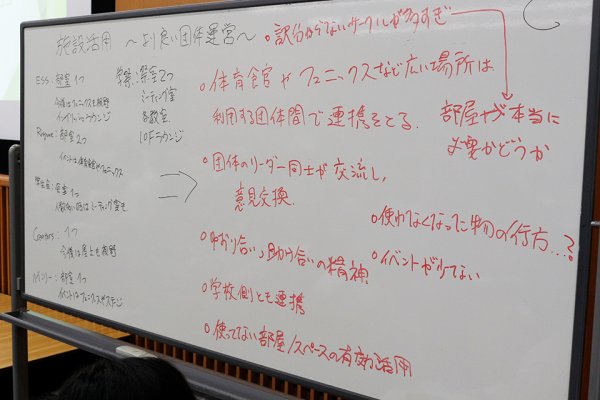 施設活用 〜より良い団体運営〜
ESS：部室1つ
今後はフェニックスも視野
Rogue：部室2つ
イベントは体育食官やフェニックス
学生会：会室1つ
人数多い時はミーティング室を
Comters：1つ
今後は屋上も視野
部室1つ
学祭：会室2つ
ミーティング室
各教室
10Fラウンジ
○訳分からないサークルが多すぎ
部屋が本当に
必要かどうか
○体育食官やフェニックスなど広い場所は
利用する団体間で連携をとる.
○団体のリーダー同士が交流し,
意見交換.
○ゆずり合い,助け合いの精神
○学校側とも連携
○使ってない部屋/スペースの有効活用
○使わなくなった物の行方…?
○イベントが少ない